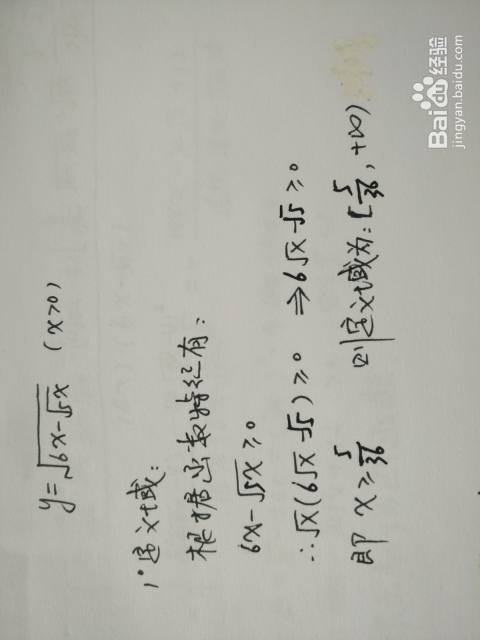 y=√(6x-√(5x)) (x>0)
1°定义域:
根据函数特征有:
6x-√(5x)≥0
∴√x(6√x-√5)≥0 ⇒6√x-√5≥0
即 x≥5/36 则定义域为:[5/36,+∞)
Baidu经验
jingyan.baidu.com